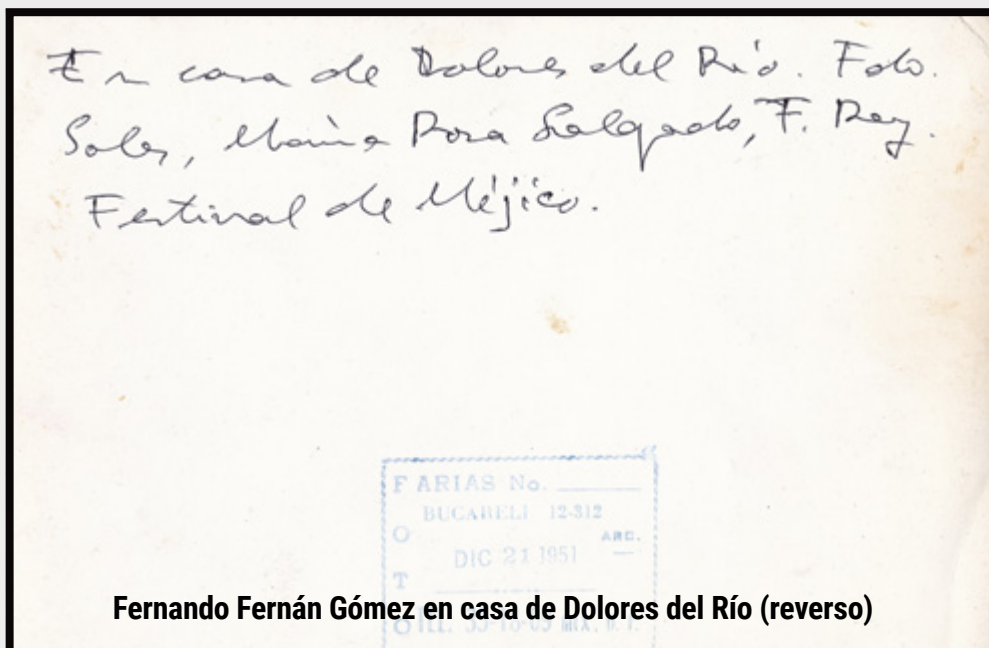 En casa de Dolores del Río. Fdo.
Soler, María Rosa Salgado, F. Rey.
Festival de Méjico.
F ARIAS No.
BUCARELI 12-312
O ARC.
DIC 21 1951
T
Fernando Fernán Gómez en casa de Dolores del Río (reverso)
O TEL. MEX. D. F.